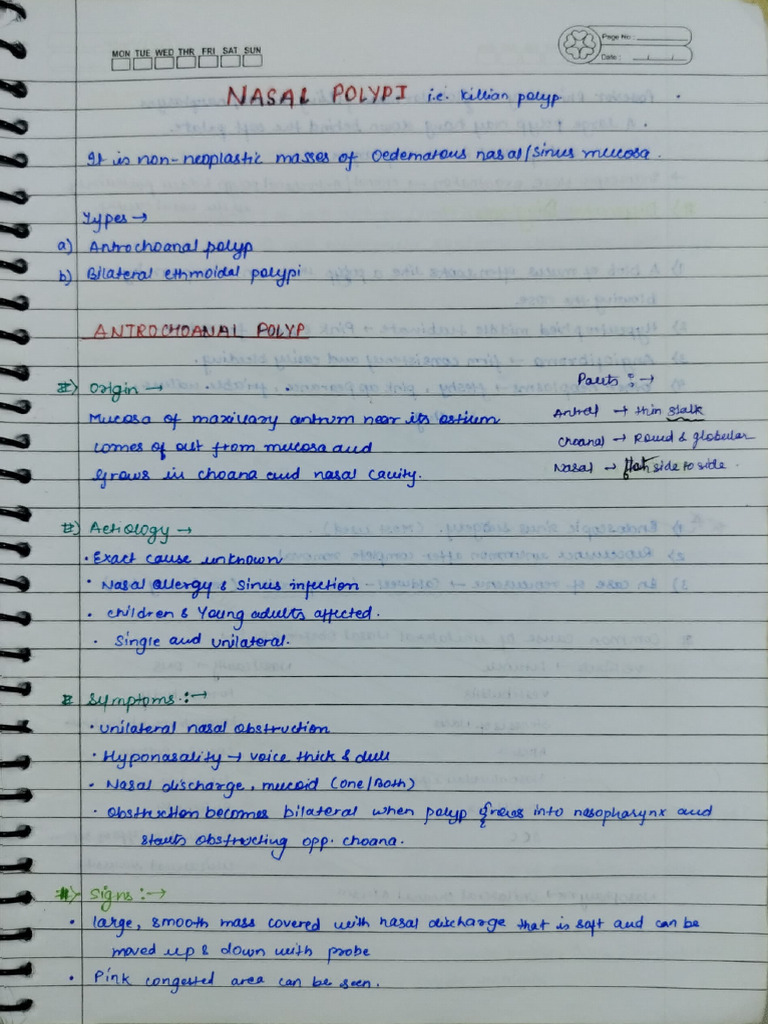 MON TUE WED THR FRI SAT SUN
Page No :
Date : / /
NASAL POLYPI i.e. Killian polyp
It is non-neoplastic masses of Oedematous nasal/Sinus mucosa.
Types →
a) Antrochoanal polyp
b) Bilateral ethmoidal polypi
ANTROCHOANAL POLYP
#) Origin →
Mucosa of maxillary antrum near its ostium
comes of out from mucosa and
Grows in choana and nasal cavity.
Parts :→
Antral → thin stalk
Choanal → Round & globular
Nasal → flat side to side.
#) Aetiology →
• Exact cause unknown
• Nasal allergy & Sinus infection
• Children & Young adults affected.
• Single and unilateral.
# Symptoms :→
• Unilateral nasal obstruction
• Hyponasality → voice thick & dull
• Nasal discharge, mucoid (one/Both)
• Obstruction becomes bilateral when polyp grows into nasopharynx and
starts obstructing opp. choana.
#) Signs :→
• large, smooth mass covered with nasal discharge that is soft and can be
moved up & down with probe
• Pink congested area can be seen.